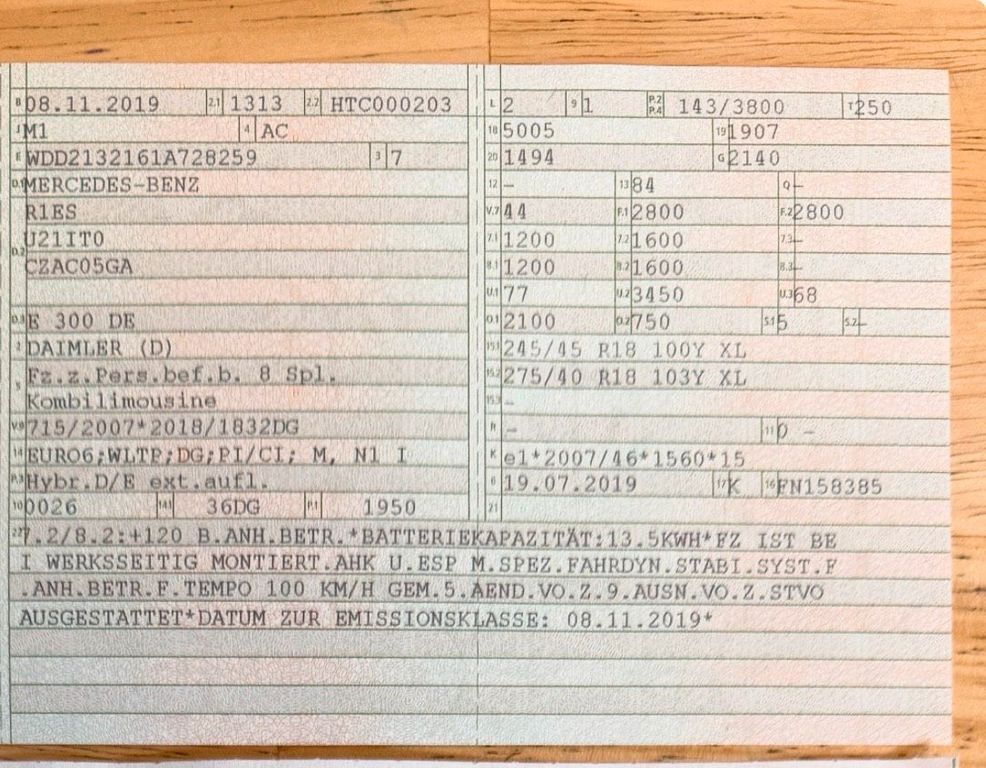 B 08.11.2019 2.1 1313 2.2 HTC000203
J M1 4 AC
E WDD2132161A728259 3 7
D.1 MERCEDES-BENZ
R1ES
D.2 U21IT0
CZAC05GA
D.3 E 300 DE
2 DAIMLER (D)
5 Fz.z.Pers.bef.b. 8 Spl.
Kombilimousine
V.9 715/2007*2018/1832DG
14 EURO6;WLTP;DG;PI/CI; M, N1 I
P.3 Hybr.D/E ext.aufl.
10 0026 14.1 36DG P.1 1950
L 2 9 1 P.2 P.4 143/3800 T 250
18 5005 19 1907
20 1494 G 2140
12 – 13 84 Q –
V.7 44 F.1 2800 F.2 2800
7.1 1200 7.2 1600 7.3 –
8.1 1200 8.2 1600 8.3 –
U.1 77 U.2 3450 U.3 68
O.1 2100 O.2 750 S.1 5 S.2 –
15.1 245/45 R18 100Y XL
15.2 275/40 R18 103Y XL
15.3 –
R – 11 0 –
K e1*2007/46*1560*15
6 19.07.2019 17 K 16 FN158385
21
22 7.2/8.2:+120 B.ANH.BETR.*BATTERIEKAPAZITÄT:13.5KWH*FZ IST BE
I WERKSSEITIG MONTIERT.AHK U.ESP M.SPEZ.FAHRDYN.STABI.SYST.F
.ANH.BETR.F.TEMPO 100 KM/H GEM.5.AEND.VO.Z.9.AUSN.VO.Z.STVO
AUSGESTATTET*DATUM ZUR EMISSIONSKLASSE: 08.11.2019*